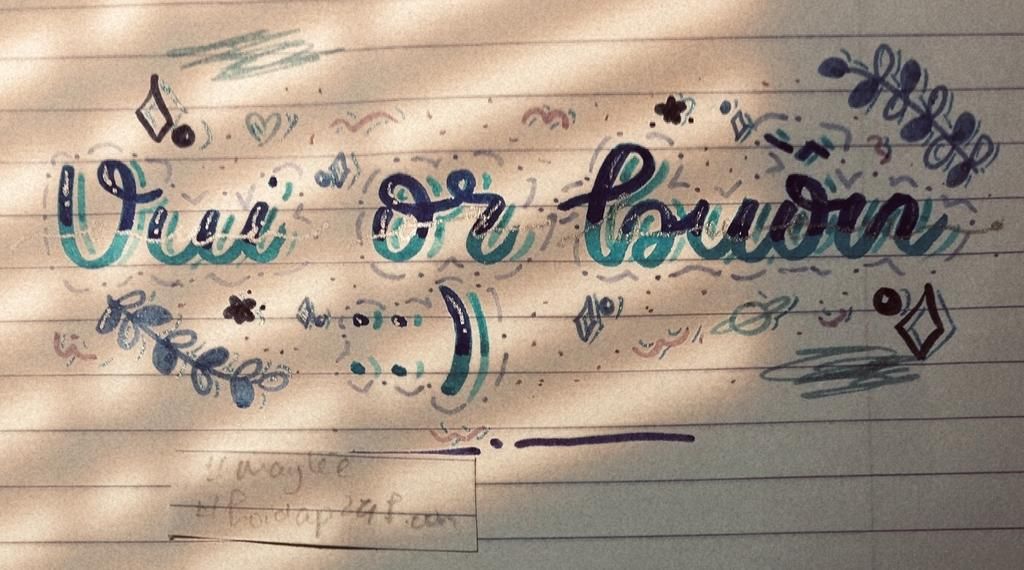 Vui or buồn
::)
#maylee
#hoidap247.com